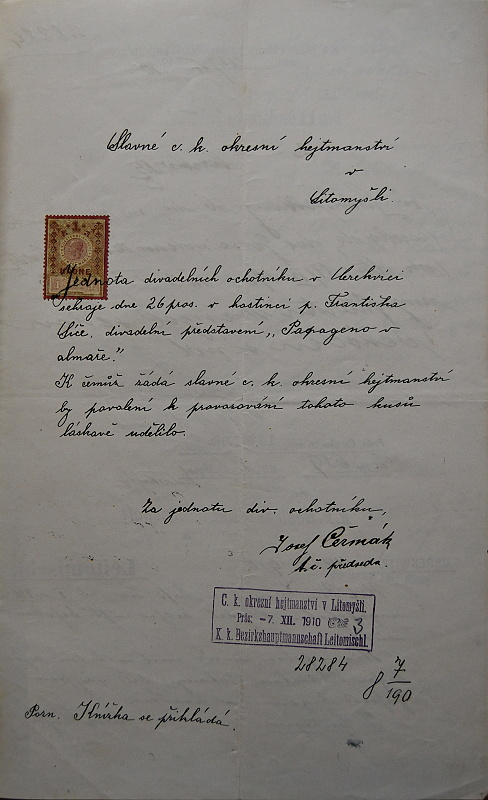 Slavné c. k. okresní hejtmanství
v
Litomyšli.
1
KRONE
Jednota divadelních ochotníku v Cerekvici
sehraje dne 26 pros. v hostinci p. Františka
divadelní představení „Papageno v
almaře."
K čemůž žádá slavné c. k. okresní hejtmanství
by povolení k provozování tohoto kusů
láskavě udělilo.
Za jednotu div. ochotníku,
Josef Čeřmák
t. č. předseda.
C. k. okresní hejtmanství v Litomyšli.
Präs: -7. XII. 1910 3
K. k. Bezirkshauptmannschaft Leitomischl.
28284
7
190
Pozn. Knížka se přikládá.